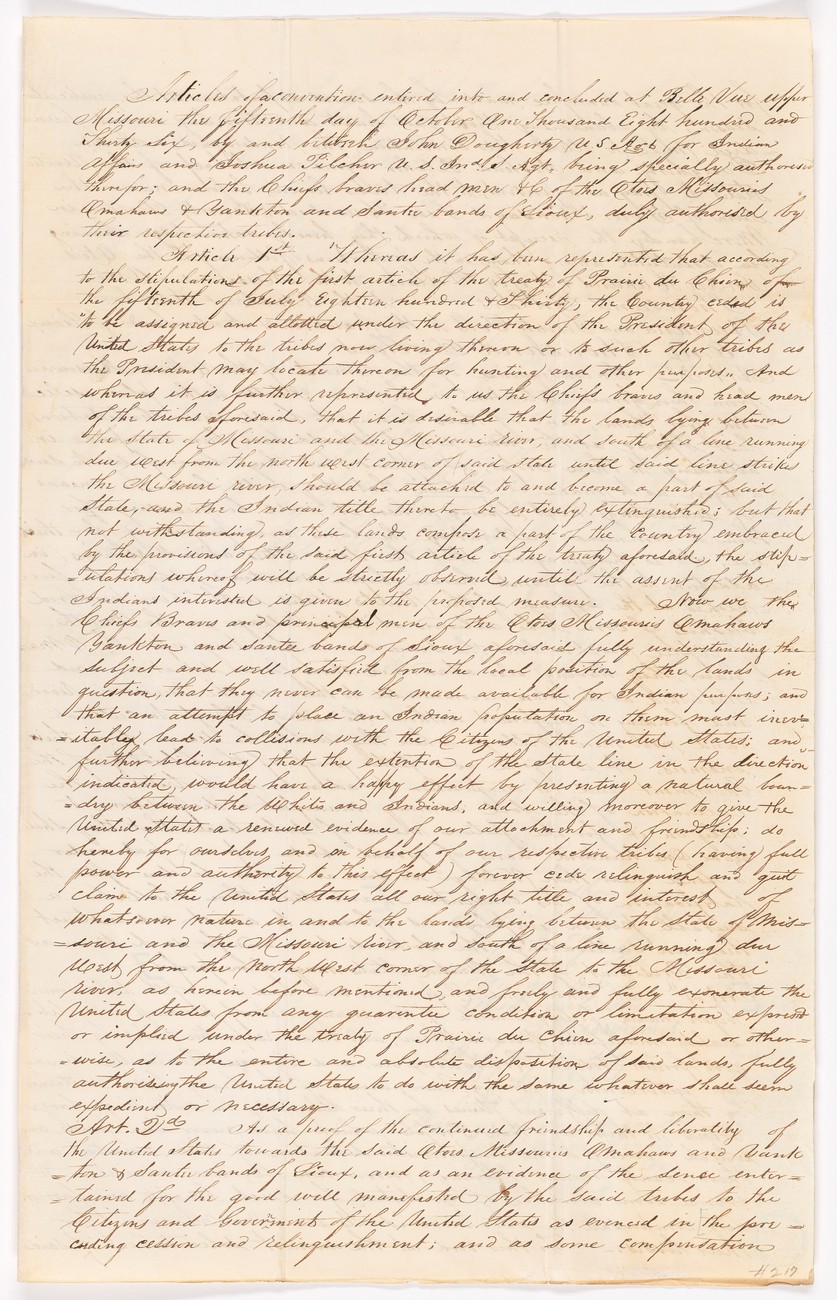 Articles of a convention entered into and concluded at Belle Vue upper
Missouri the fifteenth day of October One Thousand Eight hundred and
Thirty Six, by and betwixt John Dougherty U S Agt for Indian
affairs and Joshua Pilcher U. S. Ind. S Agt. being specially authorised
therefor; and the Chiefs braves head men &C of the Otoes Missouries
Omahaws & Yankton and Santee bands of Sioux, duly authorised by
their respective tribes.
Article 1st "Whereas it has been represented that according
to the stipulations of the first article of the treaty of Prairie du Chien of
the fifteenth of July Eighteen hundred & Thirty, the Country ceded is
"to be assigned and allotted under the direction of the President of the
United States to the tribes now living thereon or to such other tribes as
the President may locate thereon for hunting and other purposes„ And
whereas it is further represented to us the Chiefs braves and head men
of the tribes aforesaid, that it is desirable that the lands lying between
the State of Missouri and the Missouri river, and south of a line running
due west from the north west corner of said state until said line strikes
the Missouri river, should be attached to and become a part of said
State, and the Indian title thereto be entirely extinguished; but that
not withstanding, as these lands compose a part of the Country embraced
by the provisions of the said first article of the treaty aforesaid, the stip=
=ulations whereof will be strictly observed, until the assent of the
Indians interested is given to the proposed measure. Now we the
Chiefs Braves and principal men of the Otoes Missouries Omahaws
Yankton and santee bands of Sioux aforesaid fully understanding the
subject and well satisfied from the local position of the lands in
question, that they never can be made available for Indian purposes; and
that an attempt to place an Indian population on them must inev=
=itably lead to collisions with the Citizens of the United States; and
further believing that the extention of the State line in the direction
indicated, would have a happy effect by presenting a natural boun=
=dry between the Whites and Indians, and willing moreover to give the
United States a renewed evidence of our attachment and friendship; do
hereby for ourselves and on behalf of our respective tribes (having full
power and authority to this effect) forever cede relinquish and quit
claim to the United States all our right title and interest of
whatsoever nature in and to the lands lying between the State of Mis=
=souri and the Missouri river, and south of a line running due
West from the North West corner of the State to the Missouri
river, as herein before mentioned, and freely and fully exonerate the
United States from any guarantee condition or limitation expressed
or implied under the treaty of Prairie du Chien aforesaid or other=
=wise, as to the entire and absolute disposition of said lands, fully
authorising the United States to do with the same whatever shall seem
expedient or necessary.
Art. 2d As a proof of the continued friendship and liberality of
the United States towards the said Otoes Missouries Omahaws and Yank
=ton & Santee bands of Sioux, and as an evidence of the sense enter=
=tained for the good will manefested by the said tribes to the
Citizens and Government of the United States as evenced in the pre=
ceeding cession and relinquishment; and as some compensation